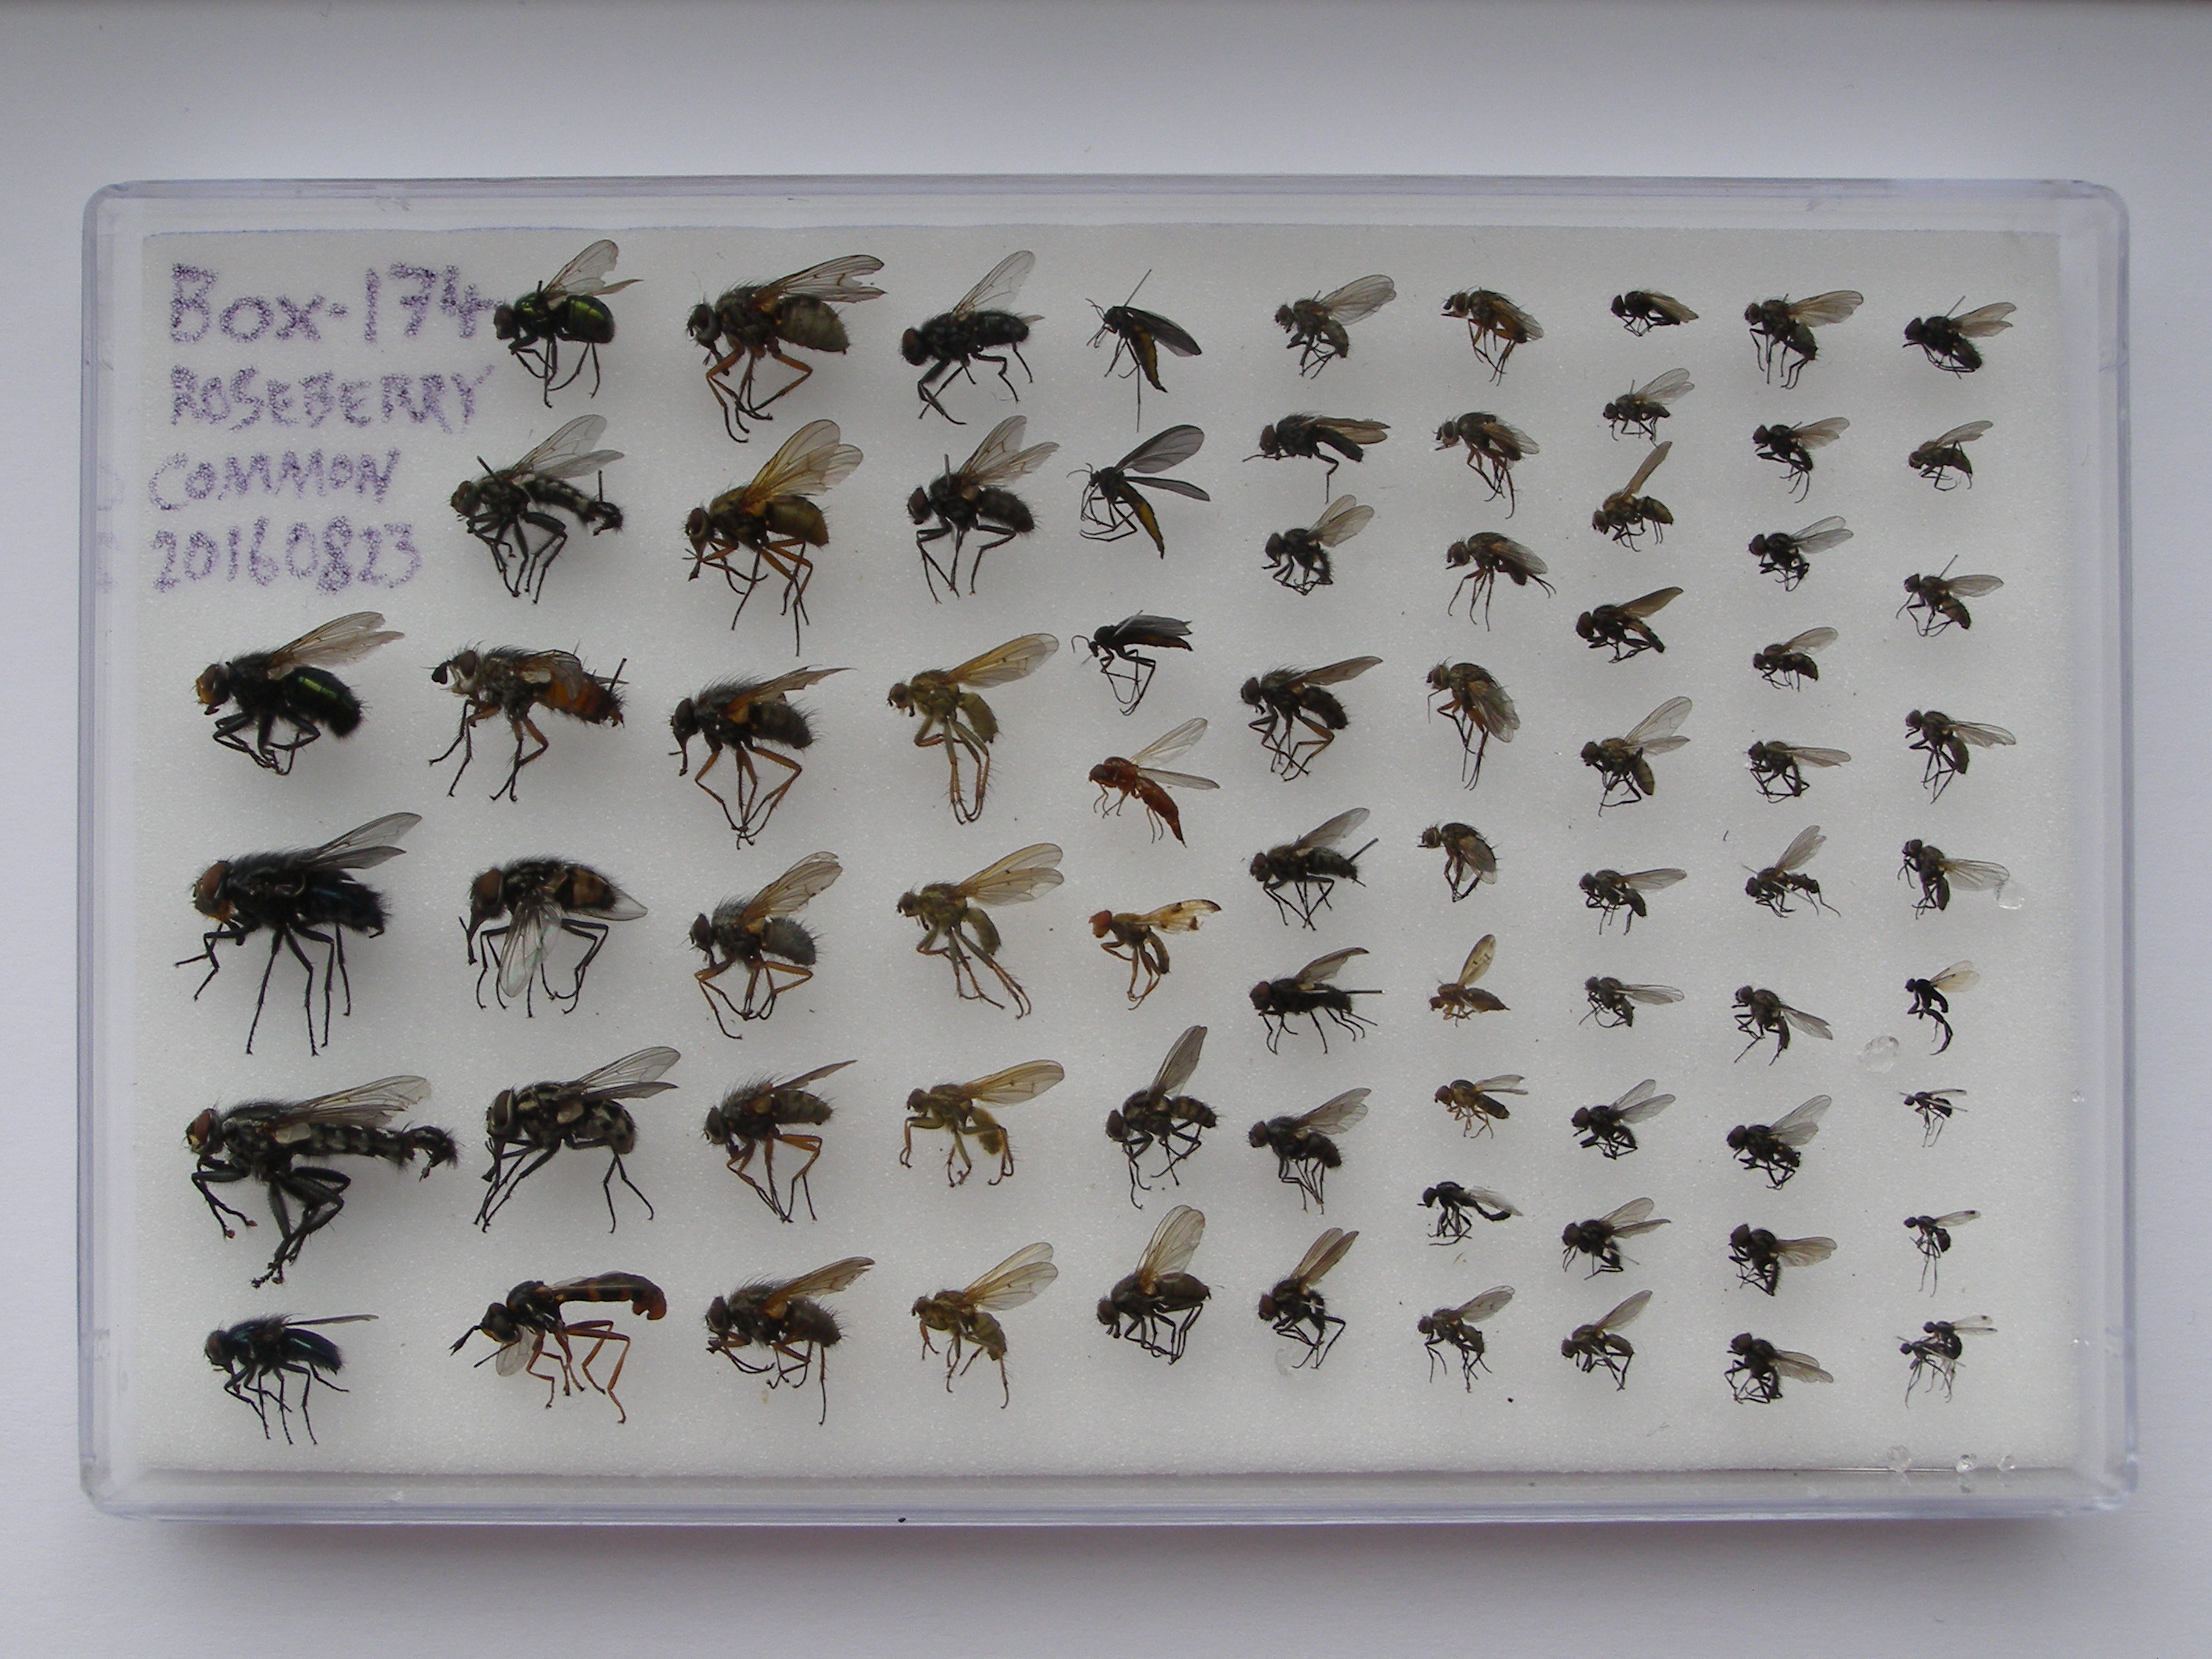 Box-174
ROSEBERRY
COMMON
20160823